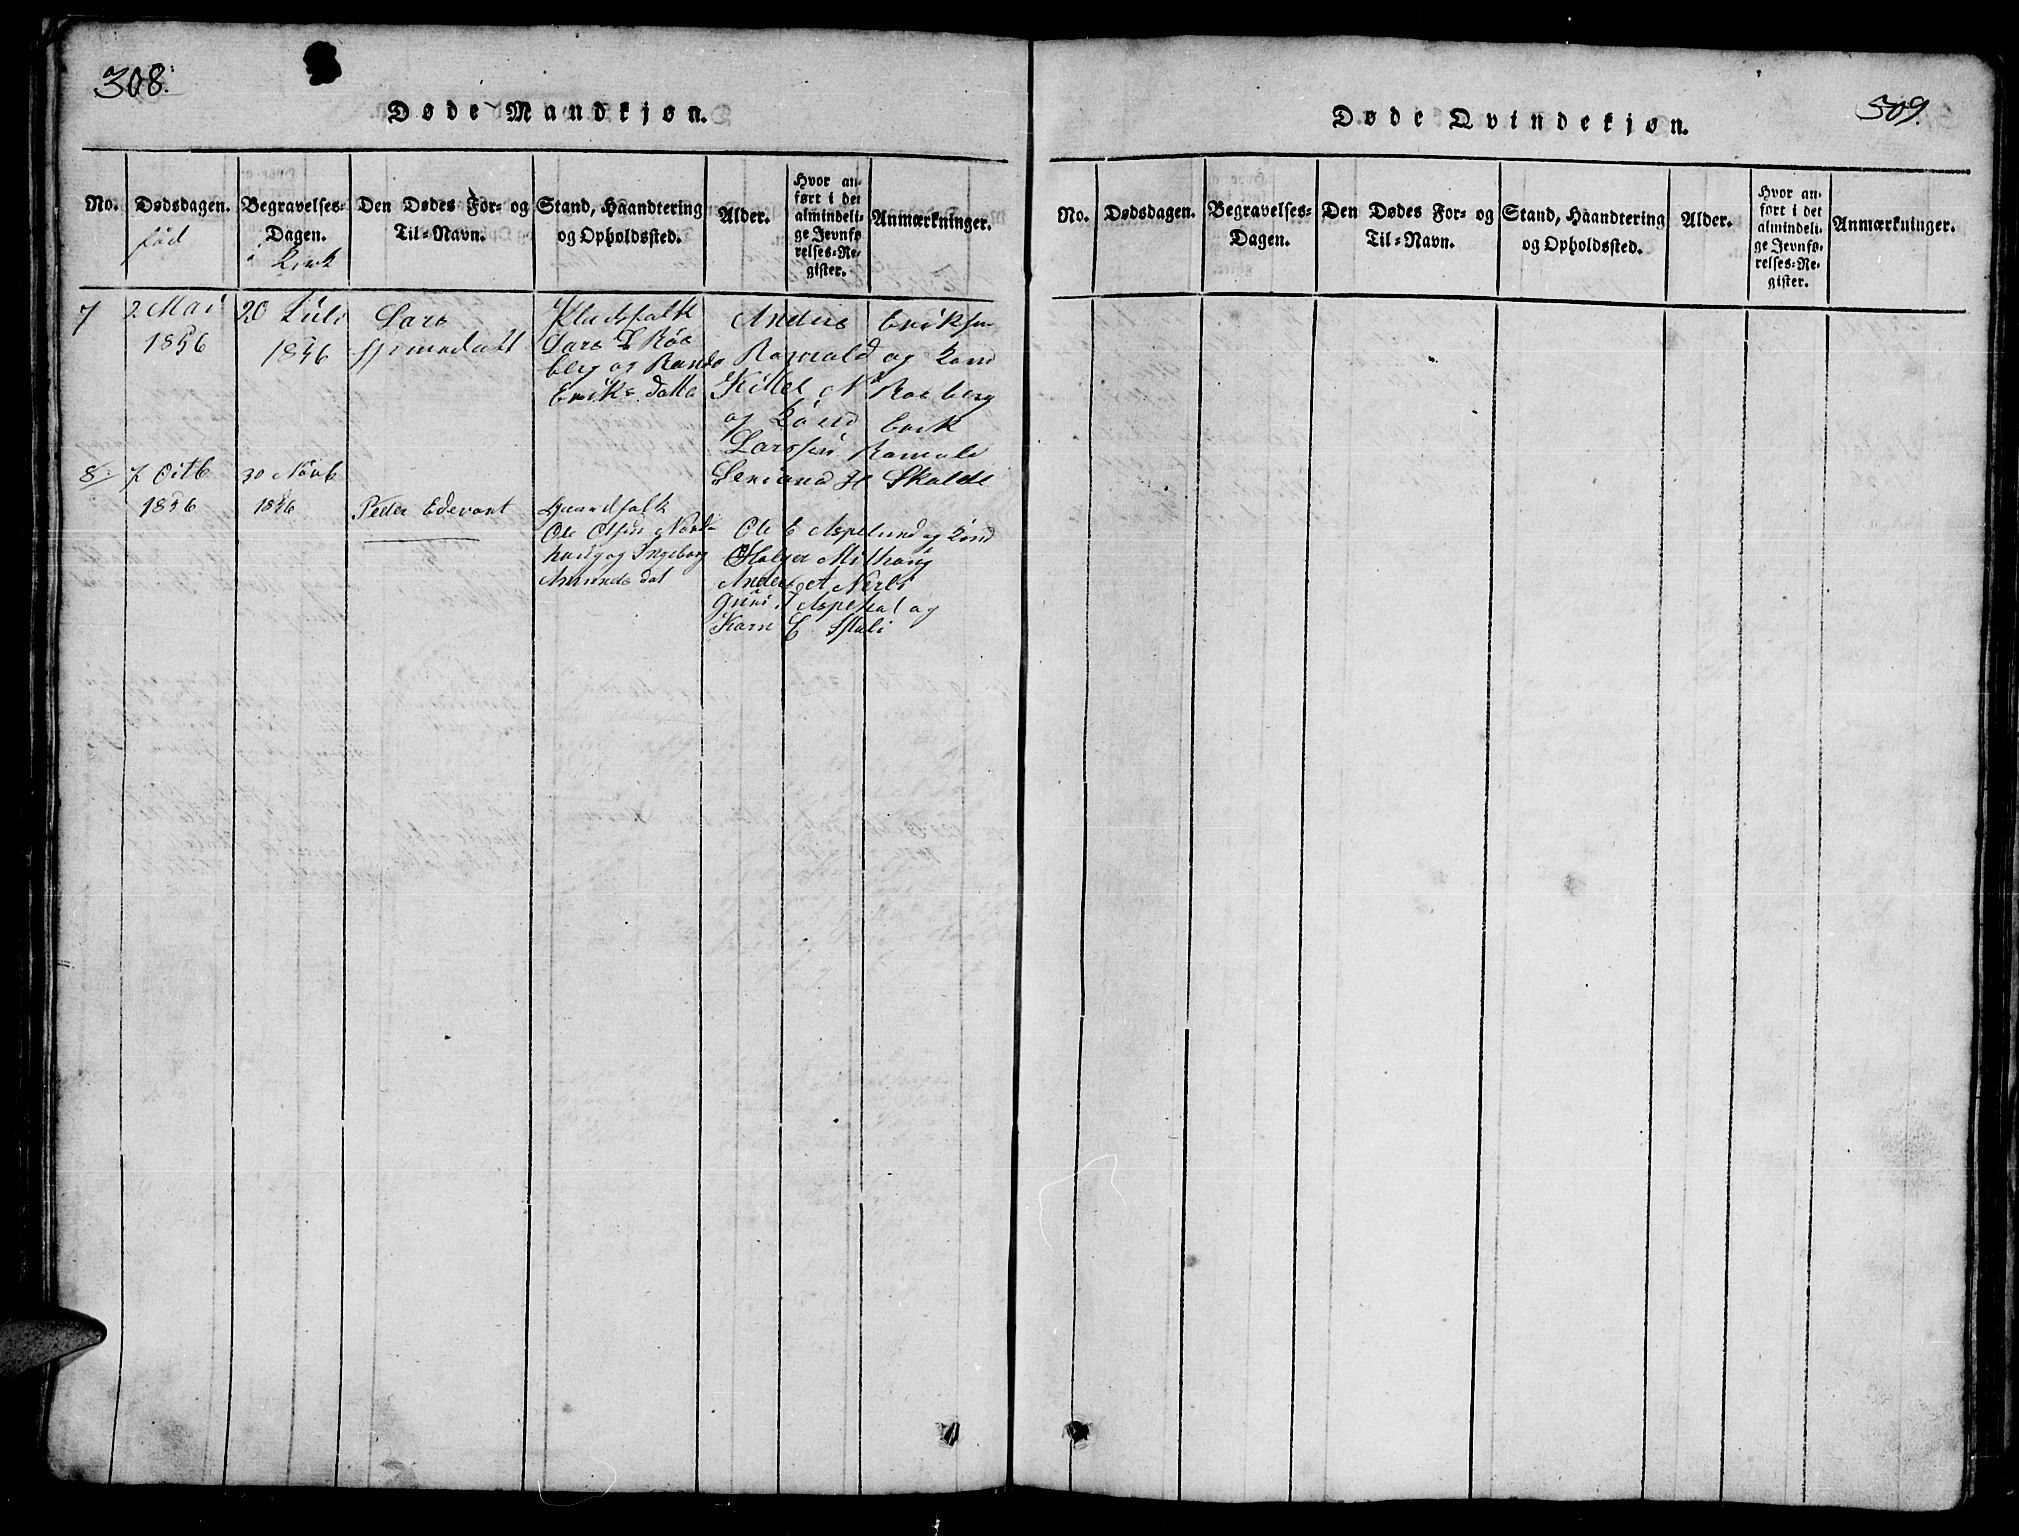 308.
Døde Mandkjøn.
No.
Dødsdagen.
fød
Begravelses-
Dagen.
i Kirk
Den Dødes For- og
Til-Navn.
Stand, Haandtering
og Opholdssted.
Alder.
Hvor an-
ført i det
almindeli-
ge Jevnfø-
relses-Re-
gister.
Anmærkninger.
7
2 Mai
1856
20 Juli
1856
Lars
Pladsfolk
Lars L Røs
berg og Rando
Eriks datte
Anders Eriksen
Romald og Kone
Kittel N Rosberg
og Kone Erik
Larssen Romale
Seriana H Skalde
8
7 Octb
1856
30 Novb
1856
Peder Edevart
Gaardfolk
Ole Olsen Nord-
haug og Ingeborg
Amunds dat
Ole E Aspelund og Kone
Holger Mithaug
Anders A Nerbø
Guni T Aspehol og
Karn E Stali
509.
Døde Qvindekjøn.
No.
Dødsdagen.
Begravelses-
Dagen.
Den Dødes For- og
Til-Navn.
Stand, Haandtering
og Opholdssted.
Alder.
Hvor an-
ført i det
almindeli-
ge Jevnfø-
relses-Re-
gister.
Anmærkninger.